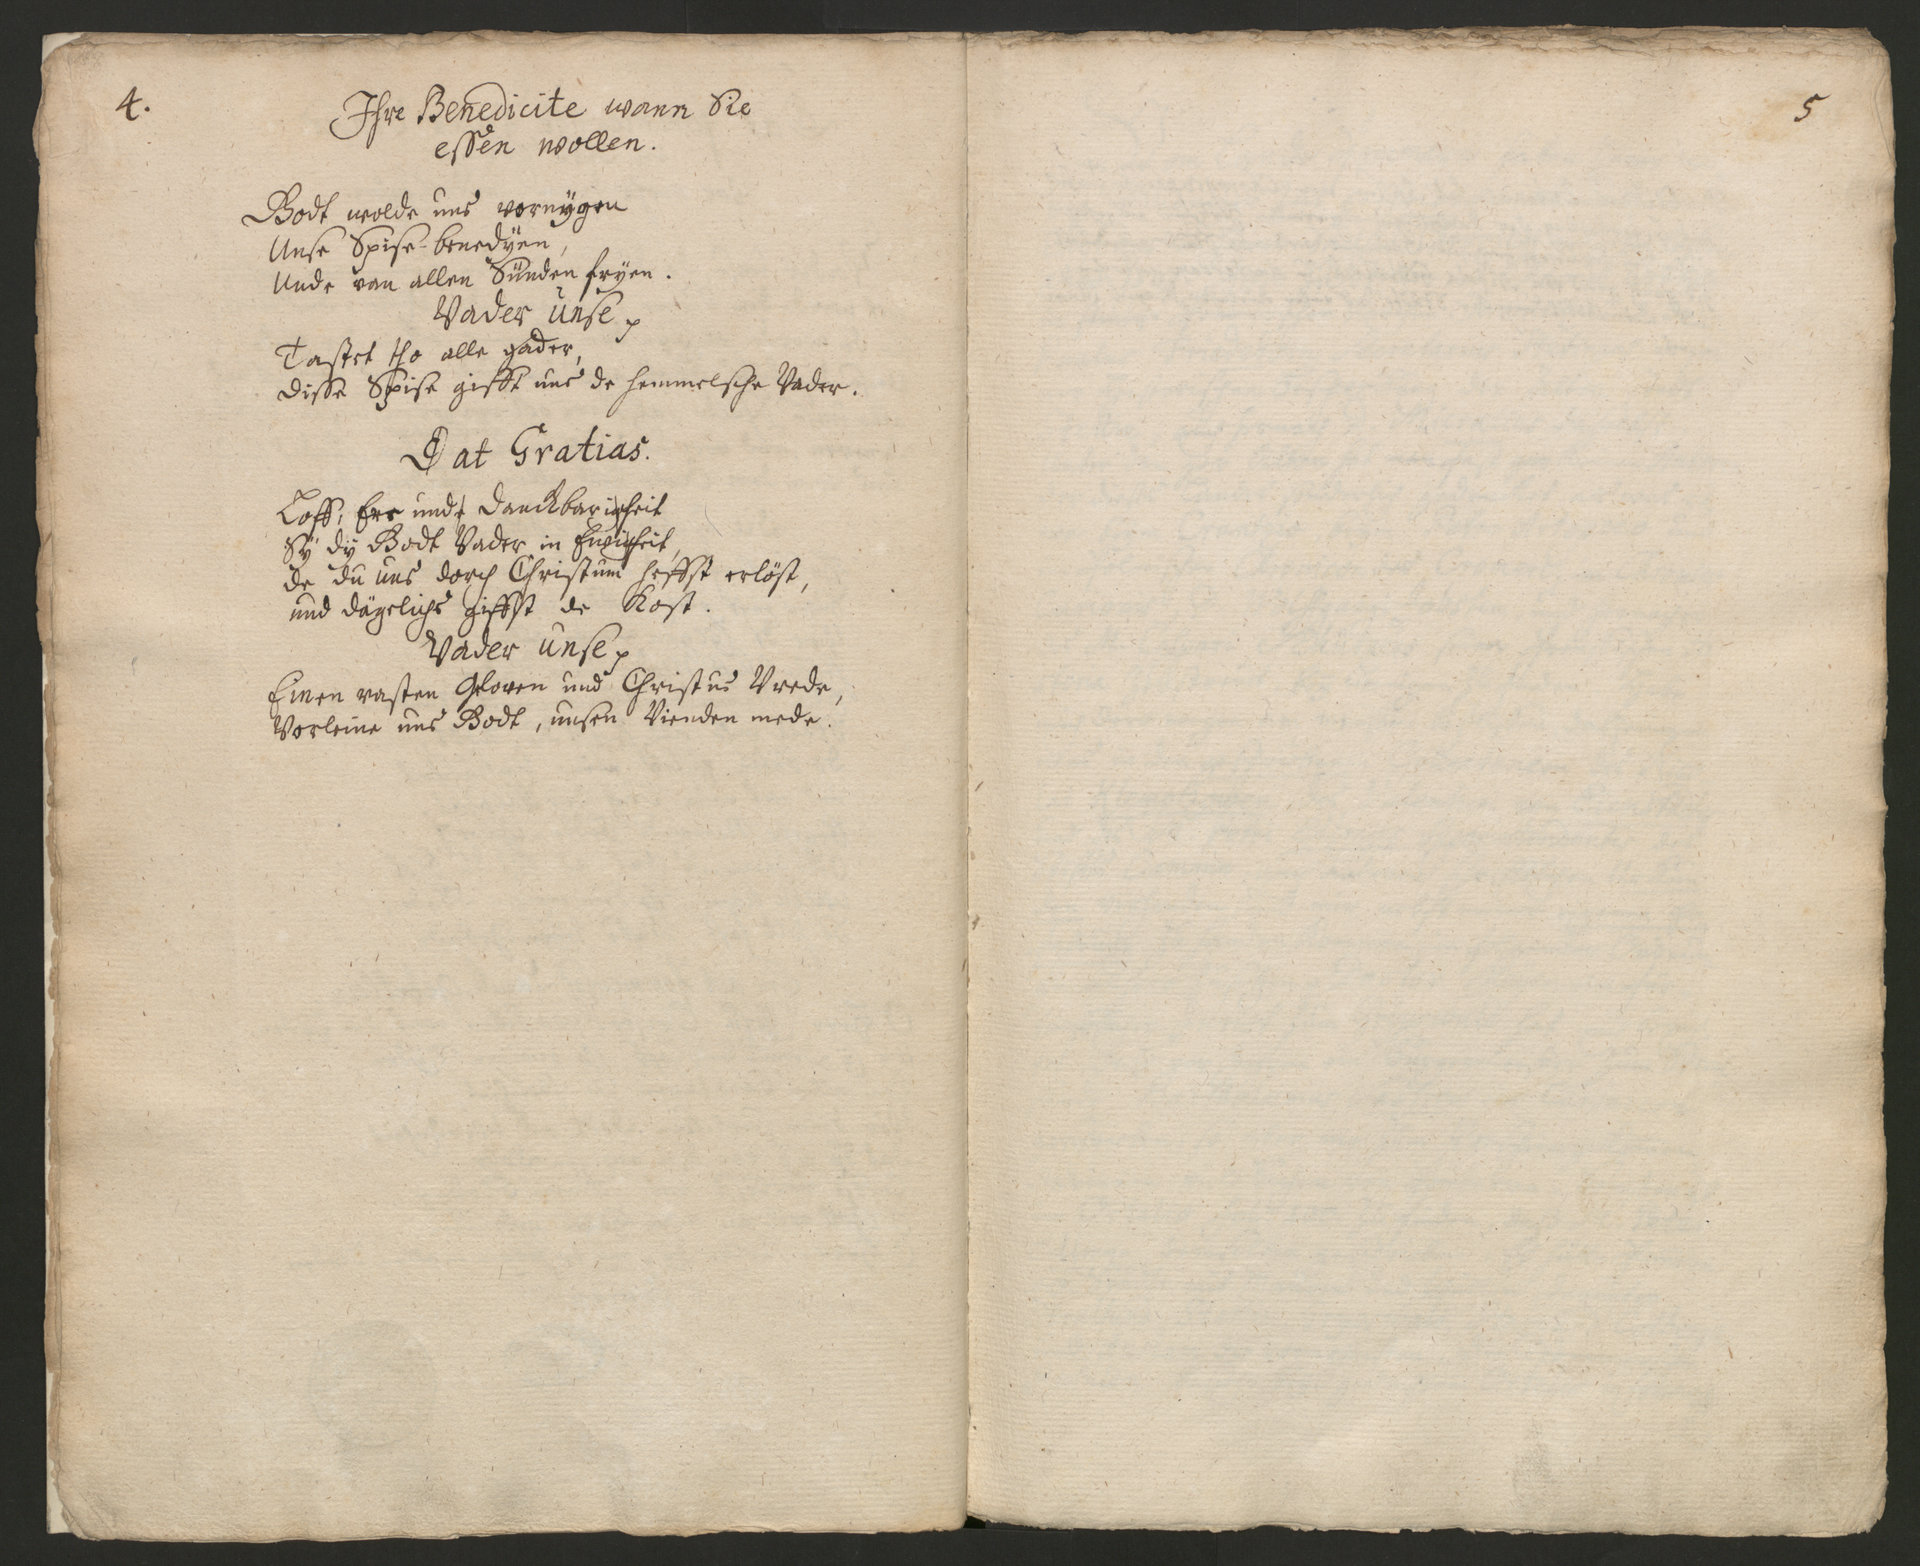 4.
Ihre Benedicite wann Sie
essen wollen.
Godt wolde uns vornÿgen
Unse Spise benedÿen,
Unde van allen Sünden frÿen.
Vader unse
Tastet tho alle gader,
Disse Spise gifft uns de hemmelsche Vader.
Dat Gratias.
Loff, Ere unde Danckbarigheit
Sÿ dÿ Godt Vader in Ewigheit,
de du uns dorch Christum heffst erlöst,
und dägelichs giffst de Kost.
Vader unse
Einen vasten Gloven und Christus Vrede,
Vorleine uns Godt, unsen Vienden mede.
5